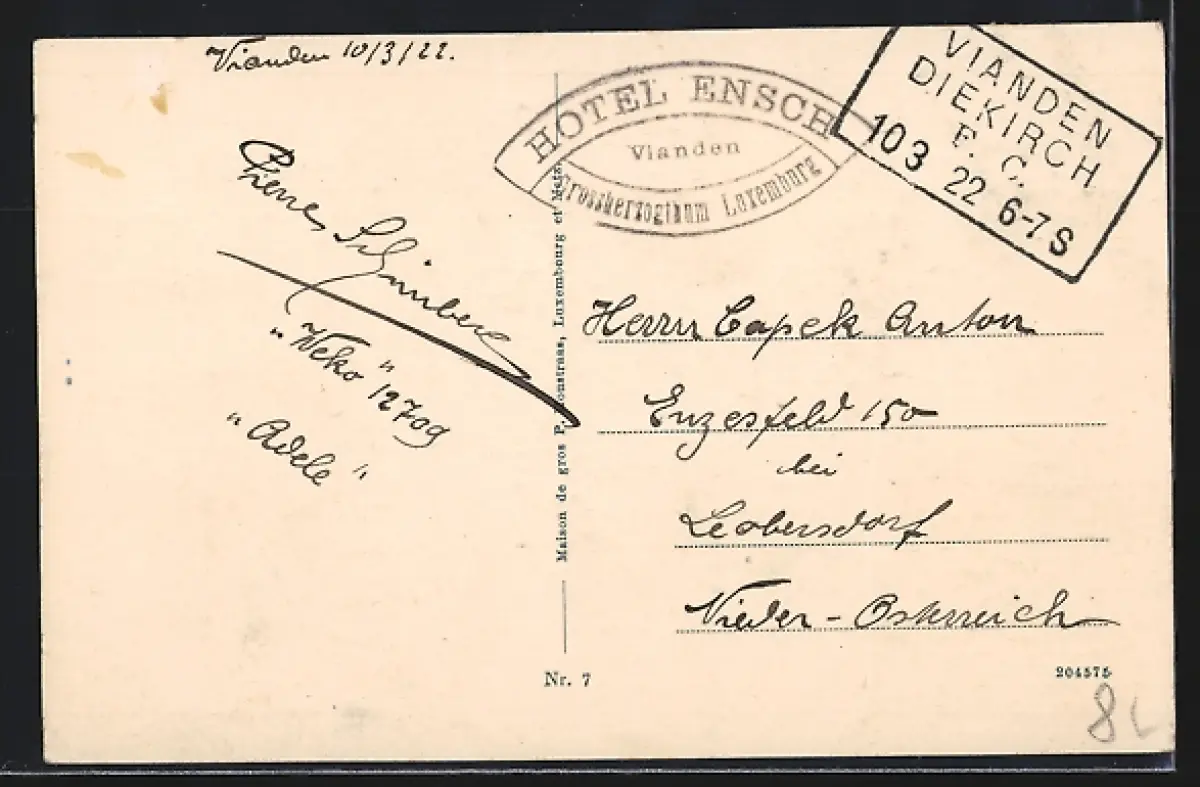 Vianden 10/3/22.
Pierre
"Weko" 12709
"Adele"
HOTEL ENSCH
Vianden
Grossherzogthum Luxemburg
VIANDEN
DIEKIRCH
F. C.
103 22 6-7 S
Herrn Capek Anton
Enzesfeld 150
bei
Leobersdorf
Nieder-Österreich
Maison de gros P. Luxembourg et Metz
Nr. 7
204575
8